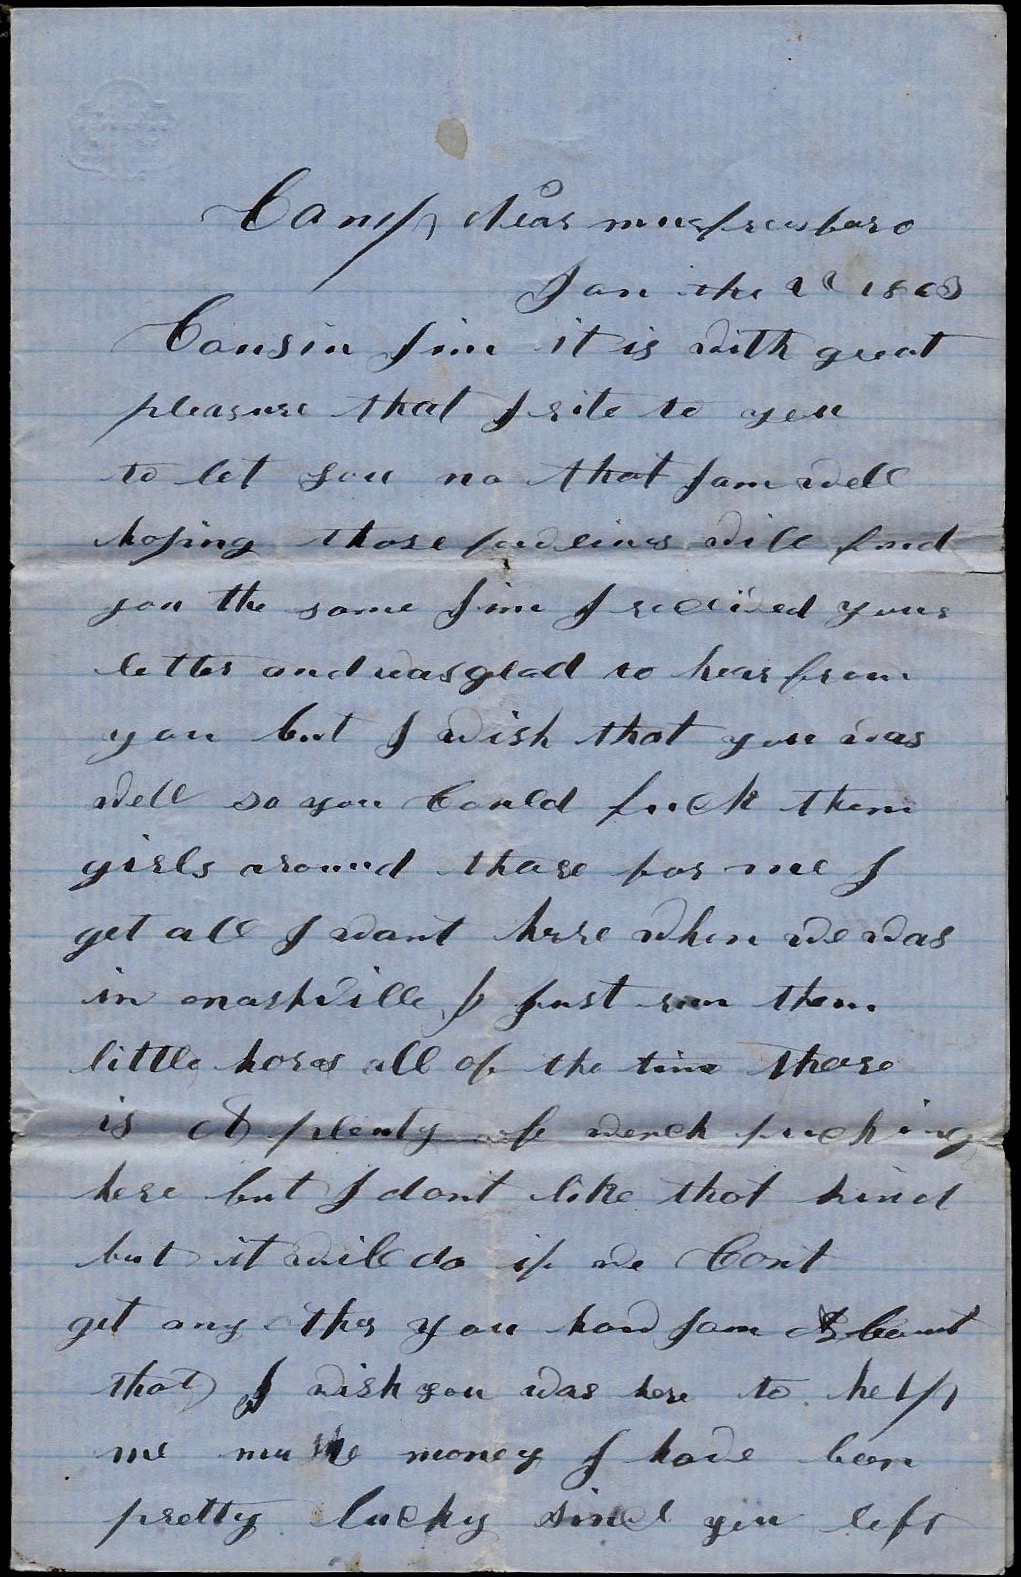 Camp Near murfreesboro
Jan the 1863
Cousin Jim it is with great
pleasure that I rite to you
to let you no that I am well
hoping those few lines will find
you the same Jim I received your
letter and was glad to hear from
you but I wish that you was
well so you Could fuck them
girls around thare for me I
get all I want here when we was
in nashville I just run them
little hores all of the time thare
is A plenty of wench fucking
here but I dont like that kind
but it will do if we Cont
get any other you how I am About
that I wish you was here to help
me make money I have been
pretty lucky since you left